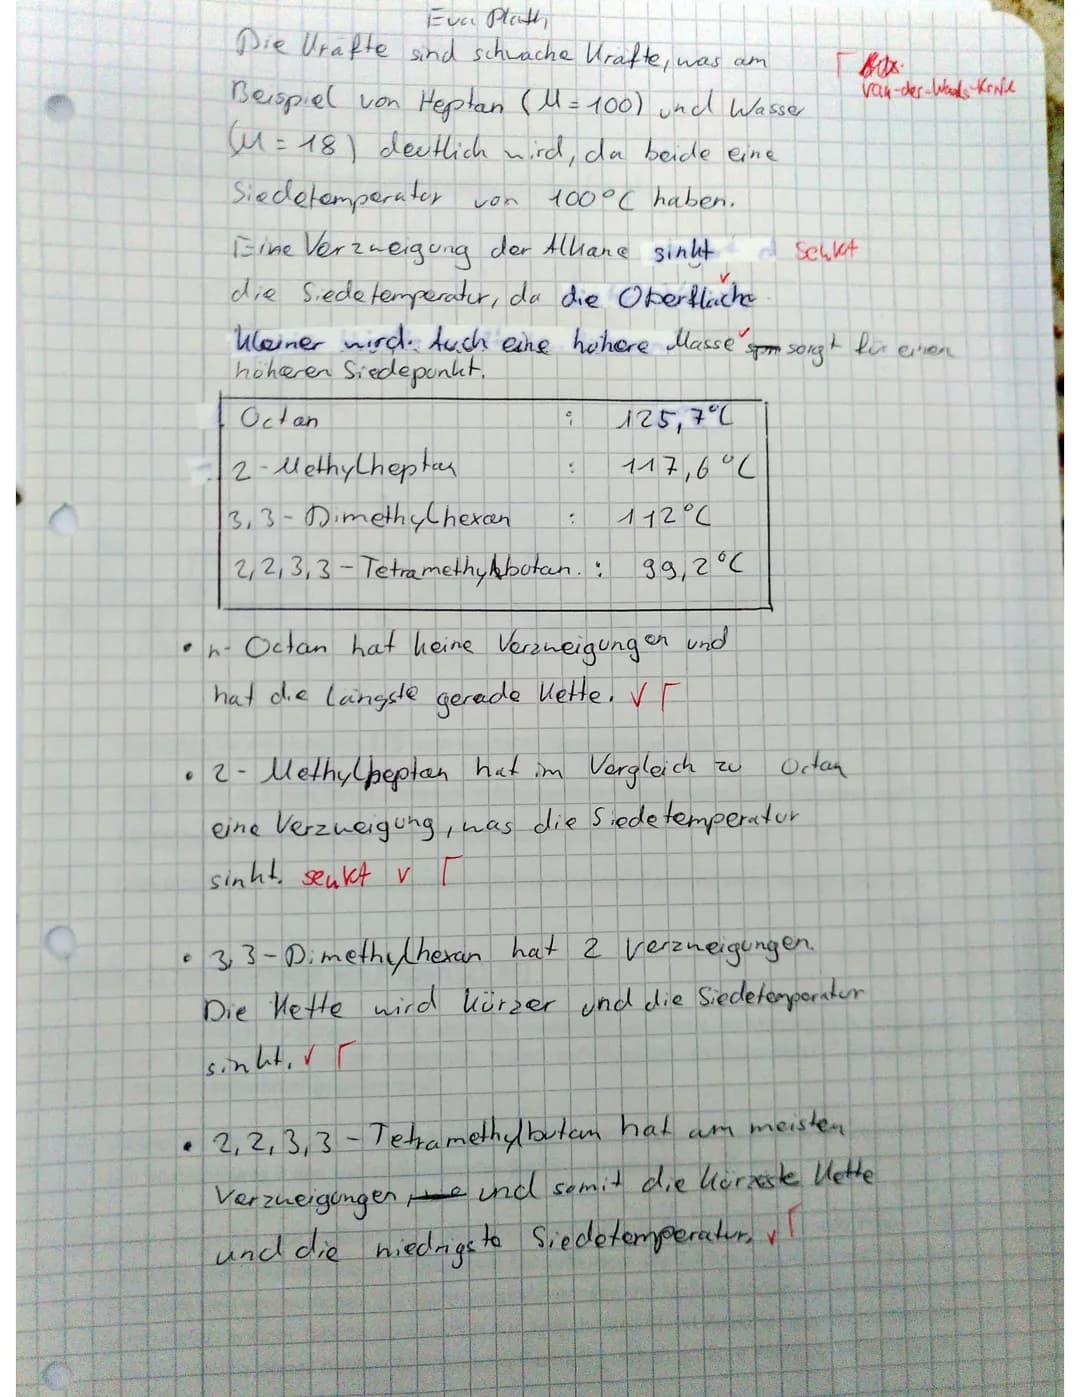 Eva Plath
Die Kräfte sind schwache Kräfte, was am
van-der-Waals-Kräfte
Beispiel von Heptan (M=100) und Wasser
(M=18) deutlich wird, da beide eine
Siedetemperatur von 100°C haben.
Eine Verzweigung der Alkane sinkt senkt
die Siedetemperatur, da die Oberfläche
kleiner wird. Auch eine höhere Masse sorgt für einen
höheren Siedepunkt.
Octan : 125,7°C
2-Methylheptan : 117,6°C
3,3-Dimethylhexan : 112°C
2,2,3,3-Tetramethylbutan. : 99,2°C
• n-Octan hat keine Verzweigungen und
hat die längste gerade Kette. √ Γ
• 2-Methylheptan hat im Vergleich zu Octan
eine Verzweigung, was die Siedetemperatur
sinkt. senkt √ Γ
• 3,3-Dimethylhexan hat 2 Verzweigungen.
Die Kette wird kürzer und die Siedetemperatur
sinkt. √ Γ
• 2,2,3,3-Tetramethylbutan hat am meisten
Verzweigungen, und somit die kürzeste Kette
und die niedrigste Siedetemperatur. √ Γ